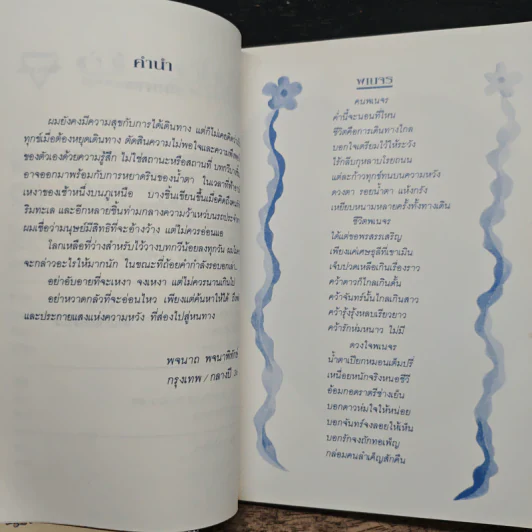 คำนำ
ผมยังคงมีความสุขกับการได้เดินทาง แต่ก็ไม่เคยคิดว่า
ทุกข์เมื่อต้องหยุดเดินทาง ตัดสินความไม่พอใจและความพึงพอ
ของตัวเองด้วยความรู้สึก ไม่ใช่สถานะหรือสถานที่ บทกวีบางชิ้น
อาจออกมาพร้อมกับการหยาดรินของน้ำตา ในเวลาที่
เหงาของเช้าหนึ่งบนภูเหนือ บางชิ้นเขียนขึ้นเมื่อคิดถึง
ริมทะเล และอีกหลายชิ้นท่ามกลางความว้าเหว่บนรถประจำ
ผมเชื่อว่ามนุษย์มีสิทธิที่จะอ้างว้าง แต่ไม่ควรอ่อนแอ
โลกเหลือที่ว่างสำหรับไว้วางบทกวีน้อยลงทุกวัน
จะกล่าวอะไรให้มากนัก ในขณะที่ถ้อยคำกำลังรอบอกเล่า
อย่าอับอายที่จะเหงา จงเหงา แต่ไม่ควรนานเกินไป
อย่าหวาดกลัวที่จะอ่อนไหว เพียงแต่ค้นหาให้ได้
และประกายแสงแห่งความหวัง ที่ส่องไปสู่หนทาง
พจนาถ พจนาพิทักษ์
กรุงเทพ / กลางปี
พเนจร
คนพเนจร
ค่ำนี้จะนอนที่ไหน
ชีวิตคือการเดินทางไกล
บอกใจเตรียมไว้ให้ระวัง
ไร้กลีบกุหลาบโรยถนน
แต่ละก้าวทุกข์ทนบนความหวัง
ดวงตา รอยน้ำตา แห้งกรัง
เหยียบหนามหลายครั้งทั้งทางเดิน
ชีวิตพเนจร
ได้แต่ขอพรสรรเสริญ
เพียงแค่เศษธุลีที่เขาเมิน
เจ็บปวดเหลือเกินเรื่องราว
คว้าดาวก็ไกลเกินดั้น
คว้าจันทร์นั้นไกลเกินสาว
คว้ารุ้งรุ้งหลบเรียวยาว
คว้ารักห่มหนาว ไม่มี
ดวงใจพเนจร
น้ำตาเปียกหมอนเต็มปรี่
เหนื่อยหนักจริงหนอชีวี
อ้อมกอดราตรีช่างเย็น
บอกดาวห่มใจให้หน่อย
บอกจันทร์จงลอยให้เห็น
บอกรักจงถักทอเพ็ญ
กล่อมคนลำเค็ญสักคืน